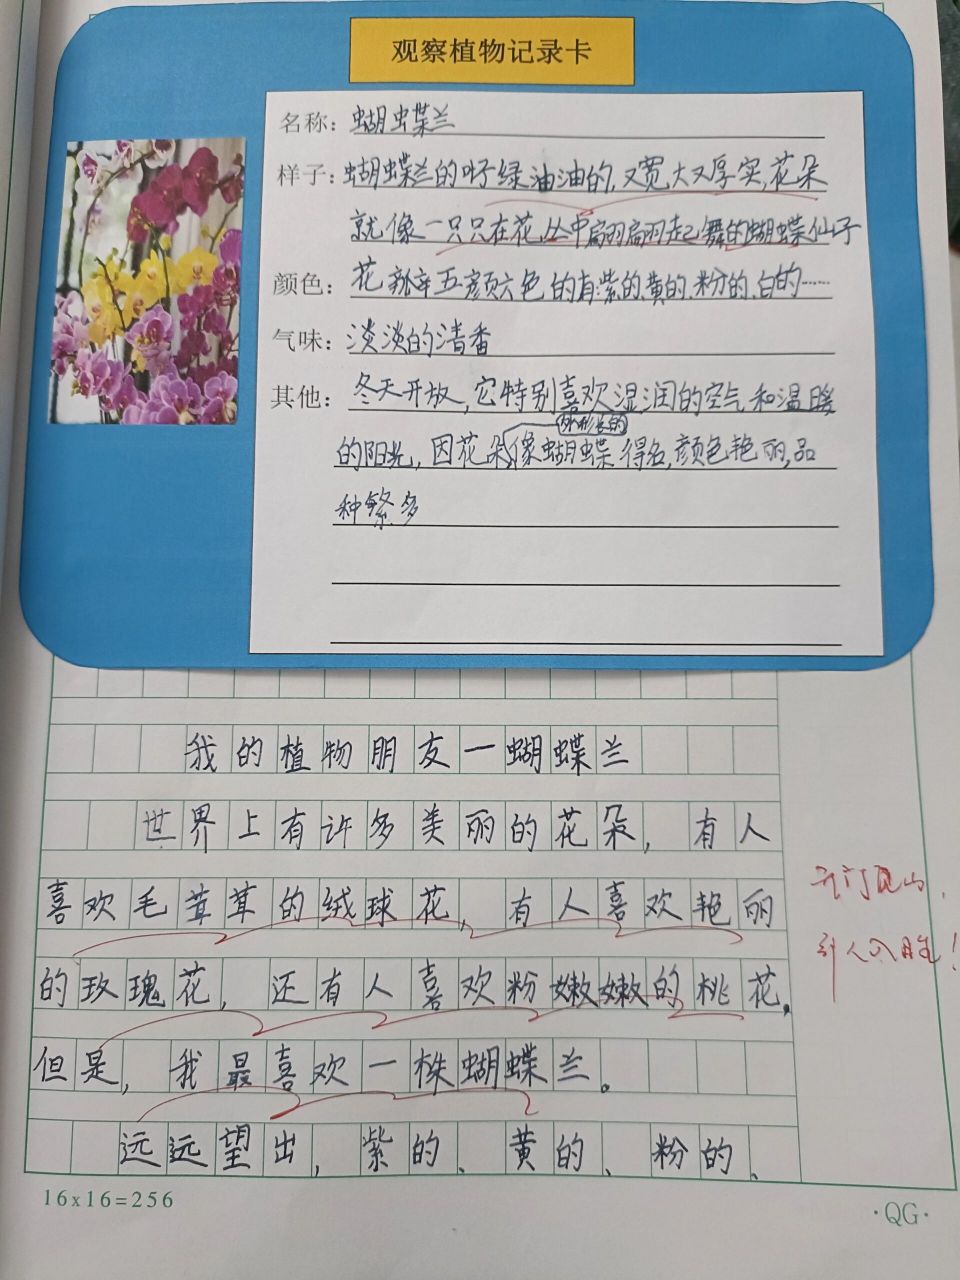 观察植物记录卡
名称：蝴蝶兰
样子：蝴蝶兰的叶子绿油油的，又宽大又厚实，花朵
就像一只只在花丛中翩翩起舞的蝴蝶仙子
颜色：花瓣五颜六色的有紫的、黄的、粉的、白的……
气味：淡淡的清香
其他：冬天开放，它特别喜欢湿润的空气和温暖
外形长的
的阳光，因花朵像蝴蝶得名，颜色艳丽，品
种繁多
我的植物朋友一蝴蝶兰
世界上有许多美丽的花朵，有人
喜欢毛茸茸的绒球花，有人喜欢艳丽
的玫瑰花，还有人喜欢粉嫩嫩的桃花。
但是，我最喜欢一株蝴蝶兰。
远远望出，紫的、黄的、粉的、
开门见山，
引人入胜！
16x16=256
·QG·